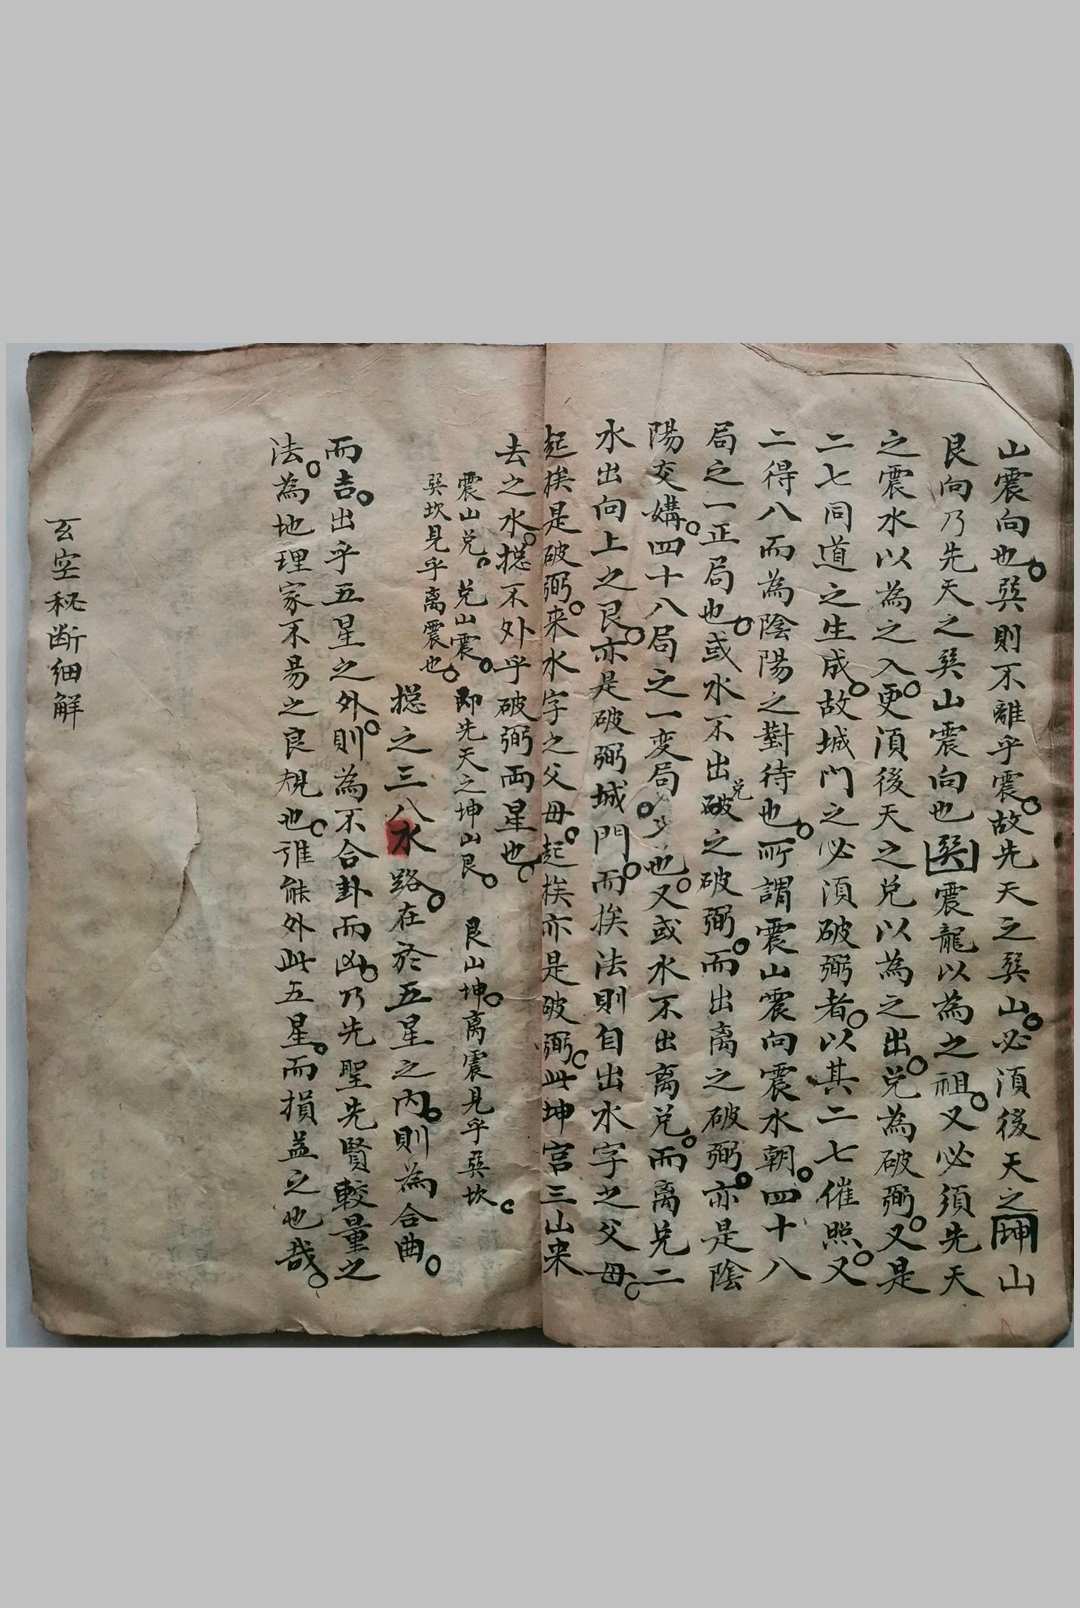 山震向也。巽則不離乎震。故先天之巽山。必須後天之坤山
艮向乃先天之巽山震向也。巽震龍以為之祖。又必須先天
之震水以為之入。更須後天之兌以為之出。兌為破弼。又是
二七同道之生成。故城門之必須破弼者。以其二七催照。又
二得八而為陰陽之對待也。所謂震山震向震水朝。四十八
局之一正局也。或水不出兌之破弼。而出离之破弼。亦是陰
陽交媾。四十八局之一变局。也。又或水不出离兌。而离兌二
水出向上之艮。亦是破弼城門。而挨法則自出水字之父母。
起挨是破弼。来水字之父母。起挨亦是破弼。此坤宫三山来
去之水。揔不外乎破弼両星也。
震山兌。兌山震。即先天之坤山艮。艮山坤。离震見乎巽坎。
巽坎見乎离震也。
揔之三八水路。在於五星之內。則為合曲。
而吉。出乎五星之外。則為不合卦而凶。乃先聖先賢較量之
法。為地理家不易之良規也。誰能外此五星。而損益之也哉。
玄空秘断細解